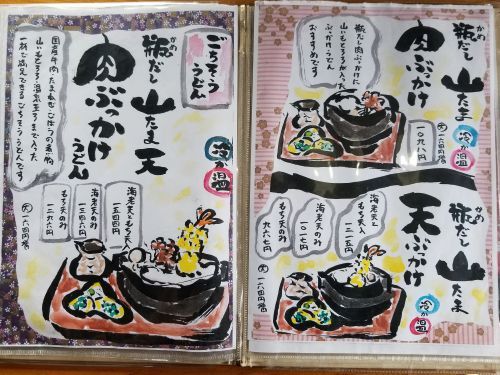 ごちそう
うどん
瓶だし
かめ
山たま天
肉ぶっかけ
うどん
冷か温
国産牛肉・たまねぎ・ごぼうの煮物
山いもとろろ・温泉玉子まで入った
一杯で満足できるごちそううどんです
海老天ともち天入
一五四〇円
海老天のみ
一三四六円
もち天のみ
一二六六円
瓶だし
かめ
山たま
肉ぶっかけ
冷か温
瓶だし肉ぶっかけに
山いもとろろが入った
ぶっかけうどん
おすすめです
一〇九八円
瓶だし
かめ
山たま
天ぶっかけ
冷か温
海老天と
もち天入
一二一五円
海老天のみ
一〇一七円
もち天のみ
九六七円